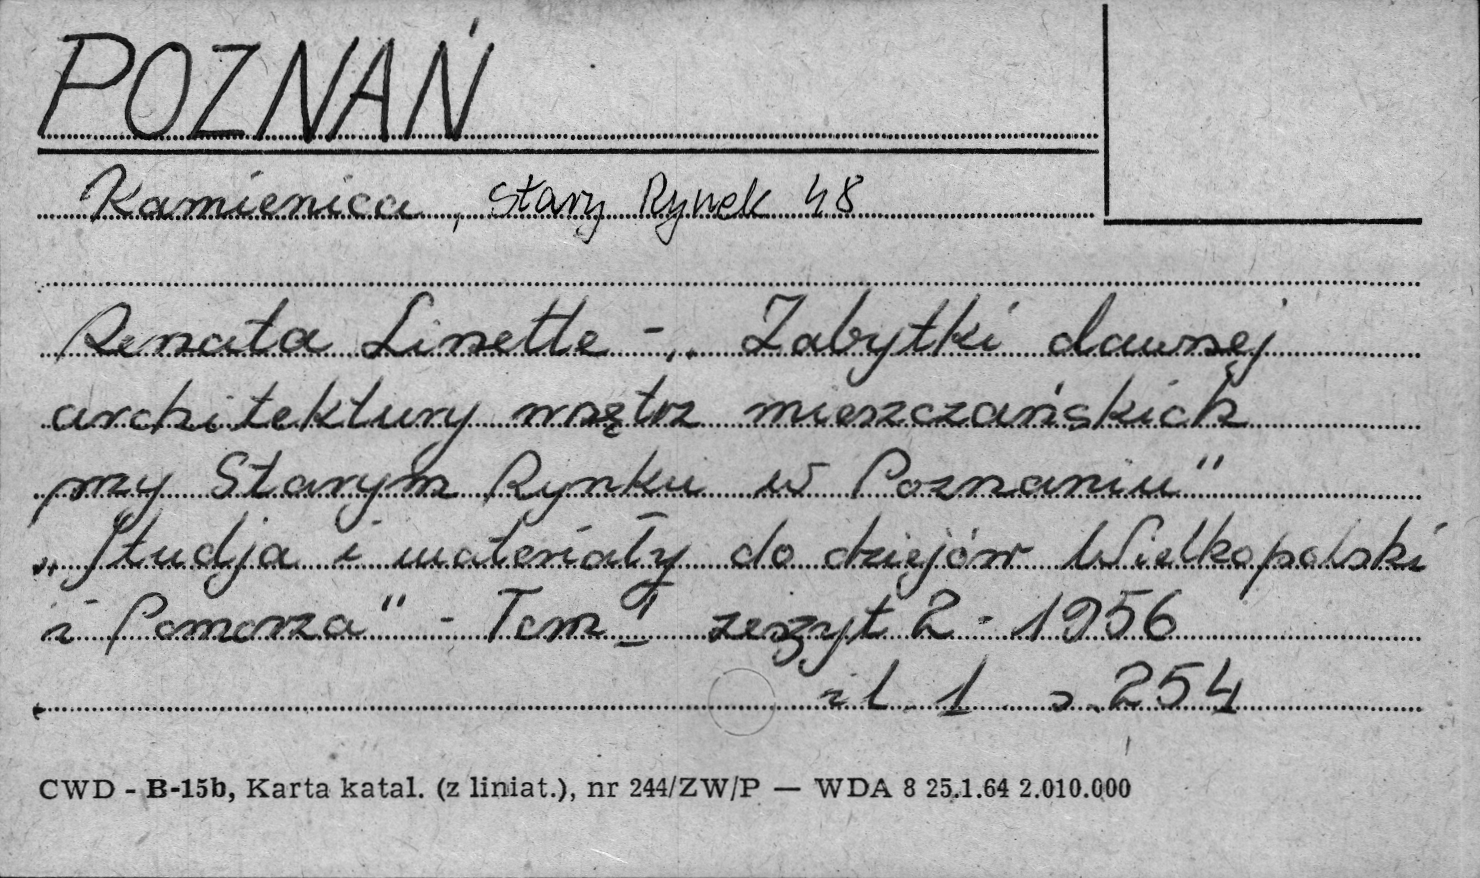 POZNAŃ
Kamienica, Stary Rynek 48
Renata Linette - „Zabytki dawnej
architektury wnętrz mieszczańskich
przy Starym Rynku w Poznaniu"
„Studja i materiały do dziejów Wielkopolski
i Pomorza" - Tom I zeszyt 2 - 1956
il. 1 s. 254
CWD - B-15b, Karta katal. (z liniat.), nr 244/ZW/P — WDA 8 25.1.64 2.010.000